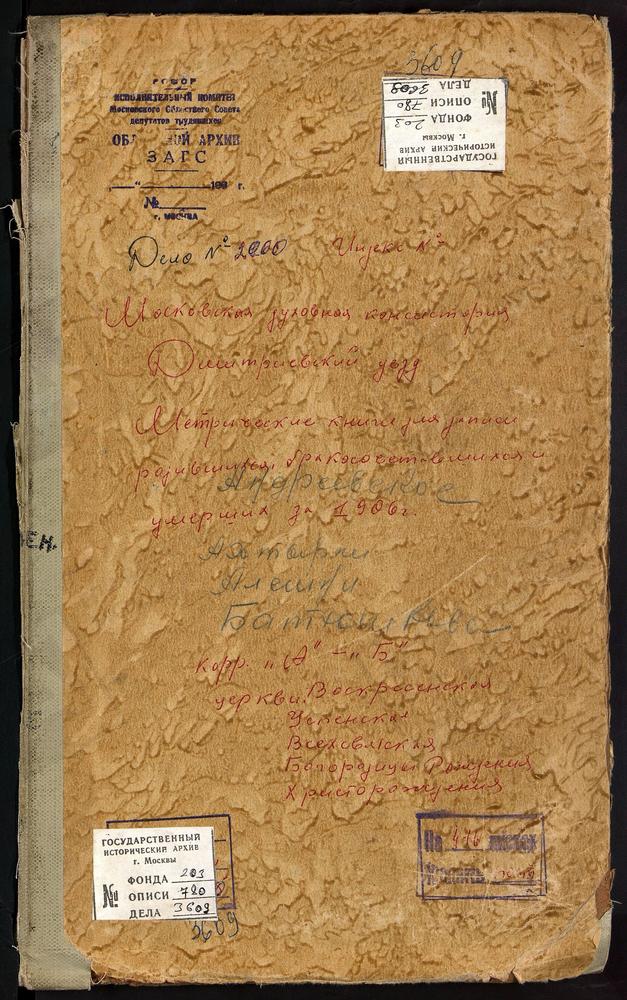 3609
РСФСР
ИСПОЛНИТЕЛЬНЫЙ КОМИТЕТ
Московского Областного Совета
депутатов трудящихся
ОБ ОЙ АРХИВ
ЗАГС
г.
№
г. МОСКВА
ГОСУДАРСТВЕННЫЙ
ИСТОРИЧЕСКИЙ АРХИВ
г. Москвы
ФОНДА 203
№ ОПИСИ 780
ДЕЛА 3609
Дело № 2200 Индекс №
Московская духовная консистория
Дмитриевский уезд
Метрические книги для записи
родившихся, бракосочетавшихся и
Андреевское
умерших за 1906г.
Ахтырки
Алешки
Батюшково
корр. "А" – "Б"
церкви: Воскресенская
Успенская
Всехсвятская
Богородицы Рождения
Христорождения
ЕН.
ГОСУДАРСТВЕННЫЙ
ИСТОРИЧЕСКИЙ АРХИВ
г. Москвы
ФОНДА 203
№ ОПИСИ 780
ДЕЛА 3609
3609
На листах